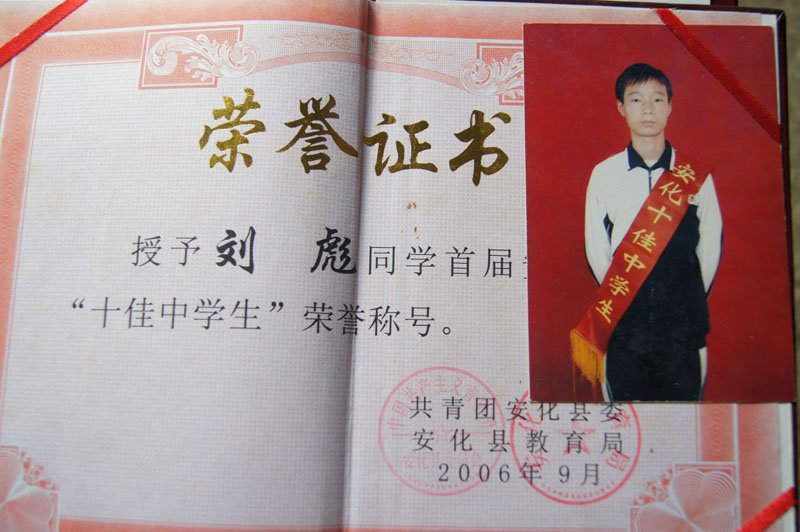 荣誉证书
授予刘 彪同学首届
“十佳中学生”荣誉称号。
共青团安化县委
安化县教育局
2006年9月
安化十佳中学生